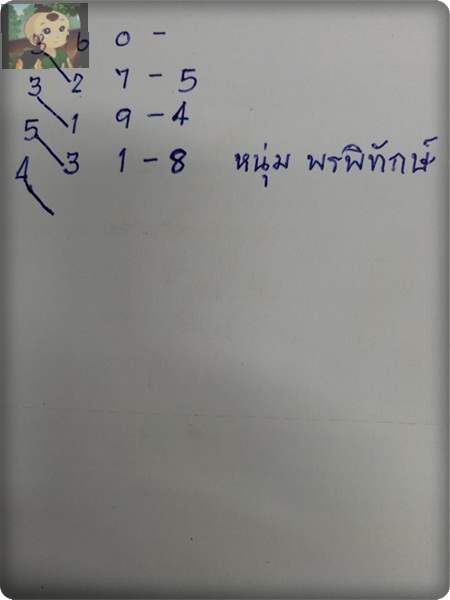 3 6 0 -
3 2 7 - 5
5 1 9 - 4
4 3 1 - 8 หนุ่ม พรพิทักษ์